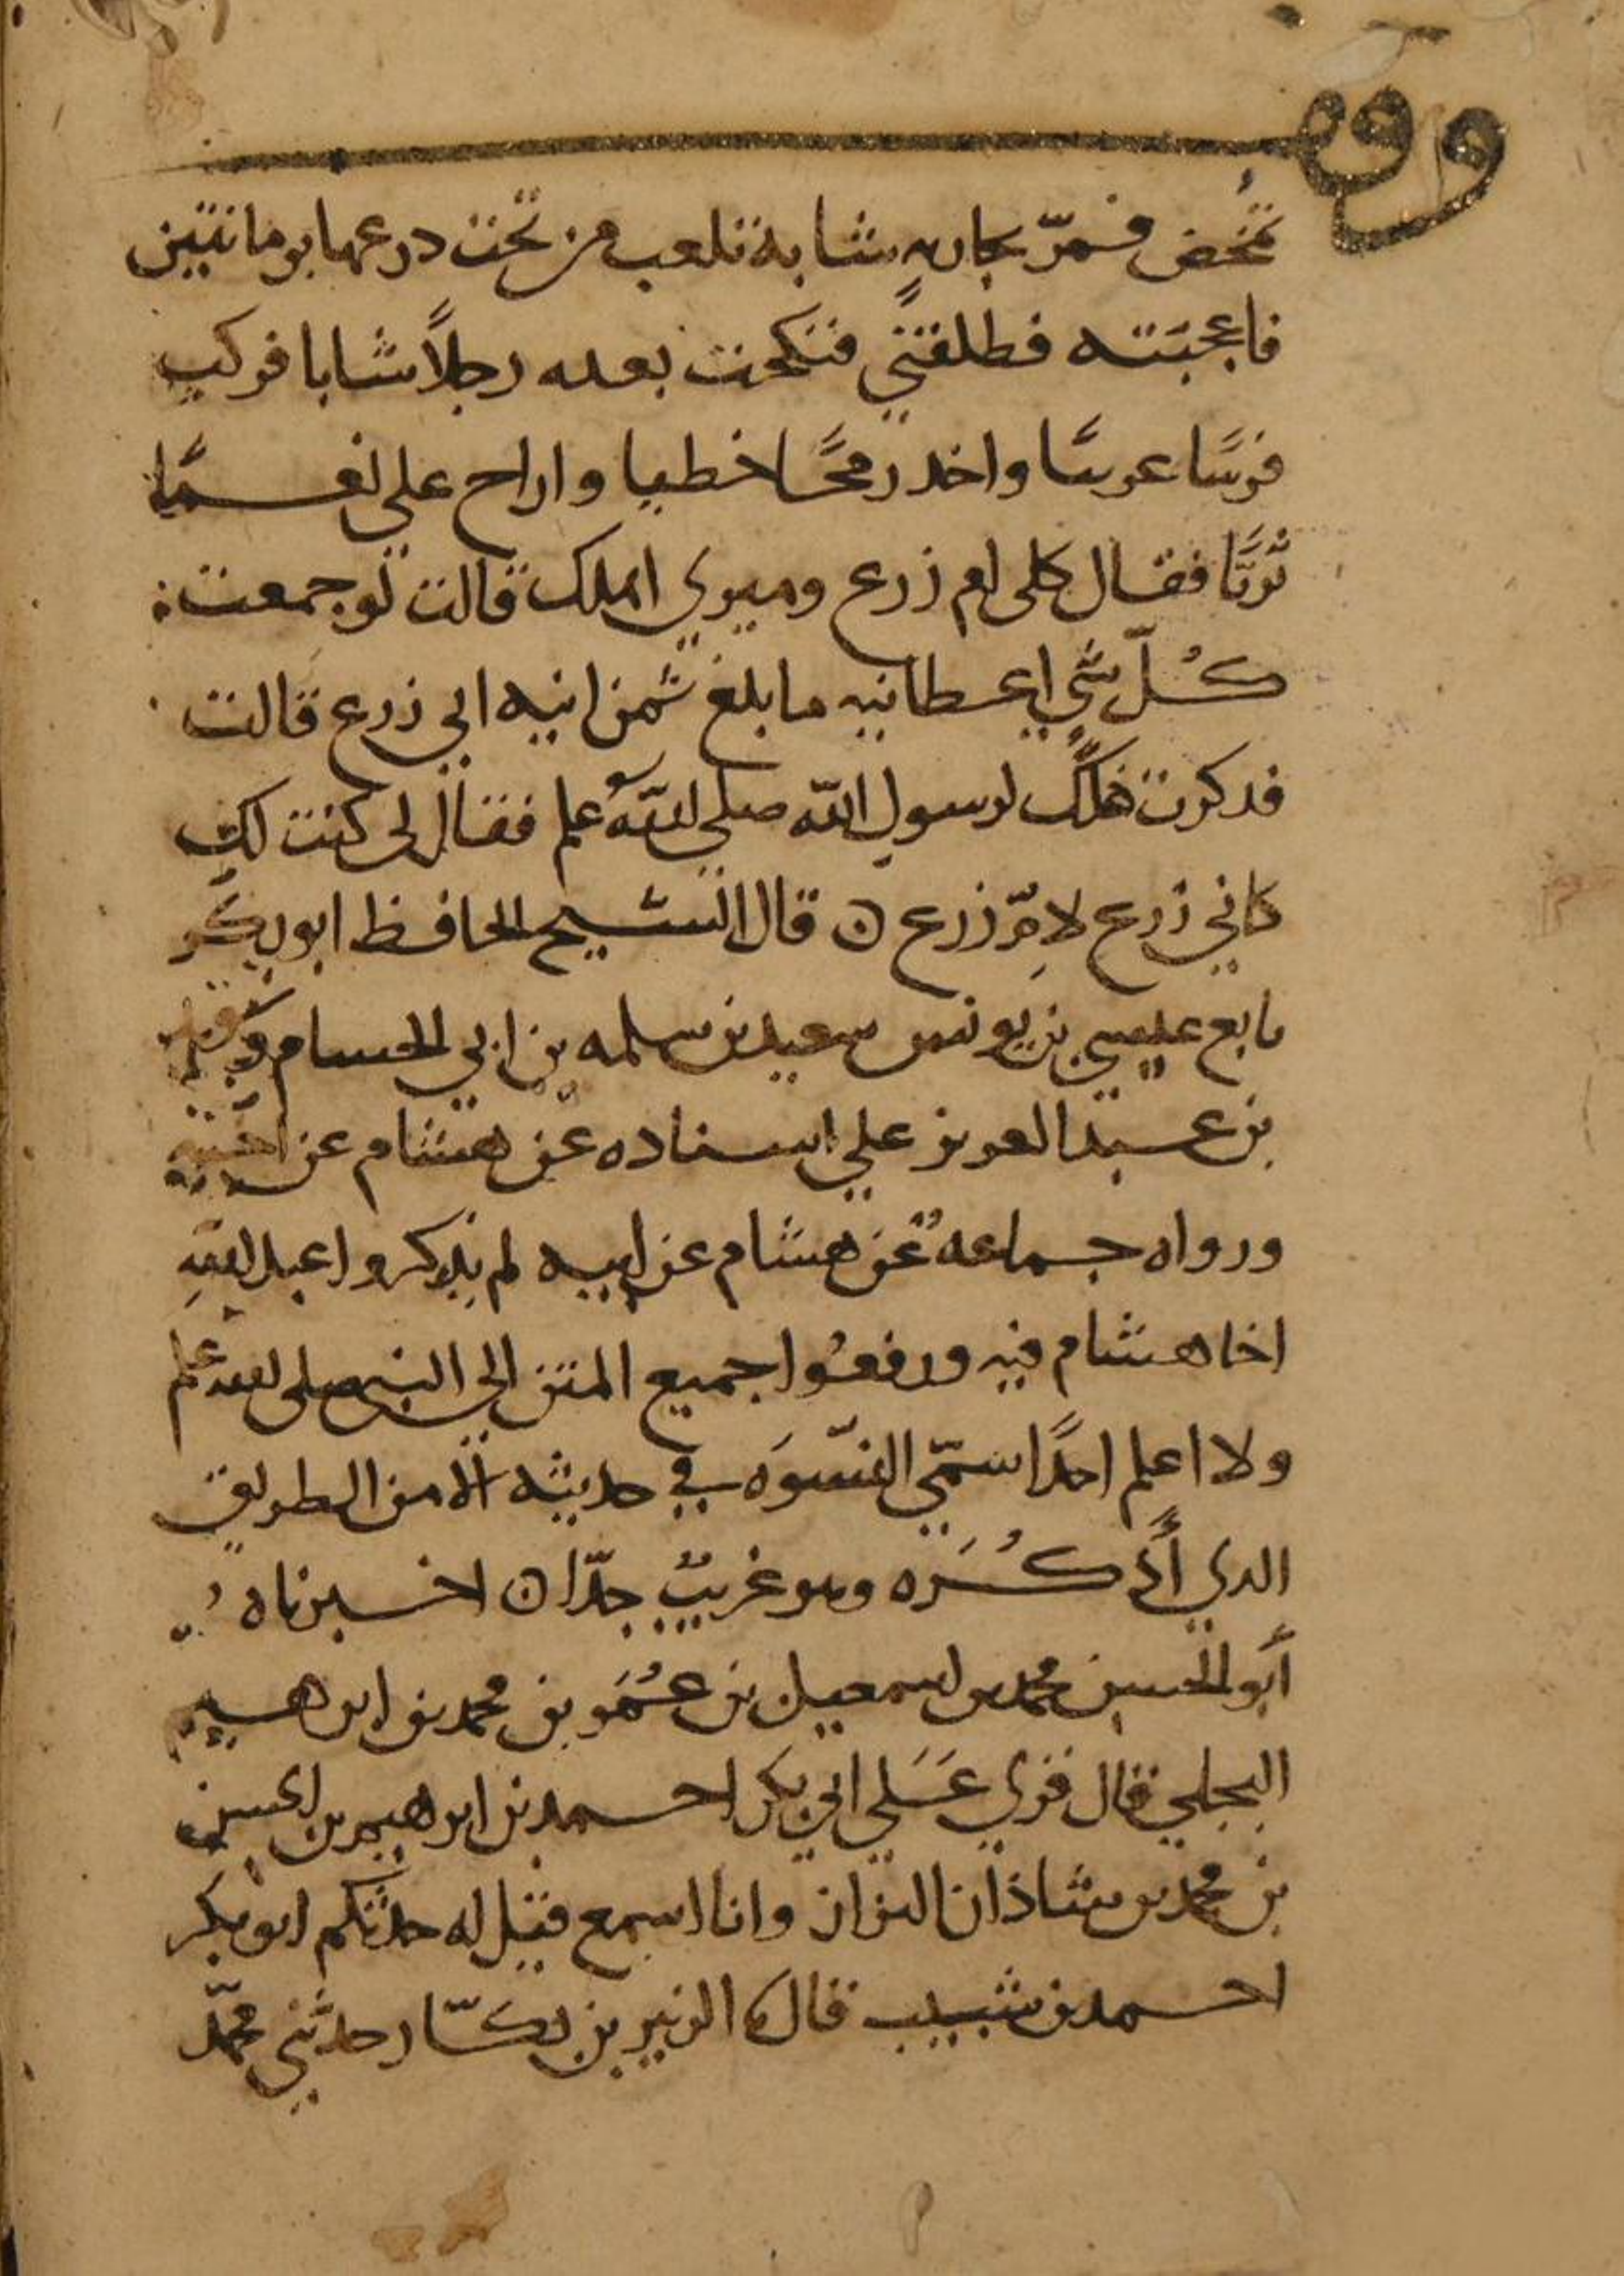 وقف
تمخض فمرّ بجاريةٍ شابة تلعب من تحت درعها برمانتين
فاعجبته فطلقني فنكحت بعده رجلاً شابا فركب
فرسًا عربيًا واخد رمحًا خطيا واراح علي نعمًا
ثريًّا فقال كلى ام زرع وميري اهلك قالت لو جمعت
كُلّ شي اعطانيه ما بلغ ثمن انيه ابي زرع قالت
فدكرت ذلك لرسول الله صلى الله عليه وسلم فقال لى كنت لك
كابي زرع لامِّ زرع ن قال الشيخ الحافظ ابو بكر
تابع عيسي بن يونس سعيد بن سلمه بن ابي الحسام
بن عبد العزيز علي اسناده عن هشام عن اخيه
ورواه جماعهٌ عن هشام عن ابيه لم يذكروا عبد اللهِ
اخا هشام فيه ورفعُوا جميع المتن الي النبي صلى الله عليه وسلم
ولا اعلم احدًا سمّي النسّوَه في حديثه الا من الطريق
الدي أَذكُرَه وهو غريبٌ جدّا ن اخبرناه
أبو الحسين محمد بن اسمعيل بن عُمَر بن محمد بن ابرهيم
البجلي قال قري عَلَي ابي بكر احمد بن ابرهيم بن الحسن
بن محمد بن شاذان البزاز وانا اسمع قيل له حدثكم ابو بكر
احمد بن شبيب قال الزبير بن بكّار حدثني محمّد